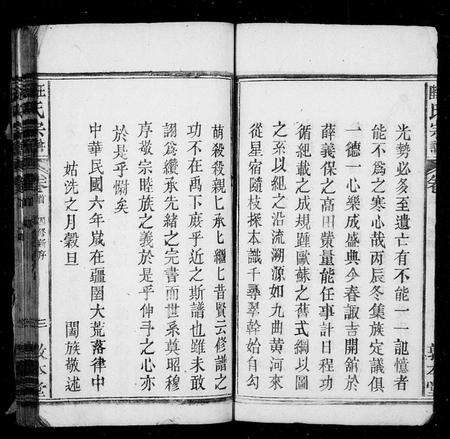 光勢必多至遺亡有不能一一記憶者
能不為之寒心哉丙辰冬集族定議俱
一德一心樂成盛典今春諏吉開館於
薛義保之高田黃量能任事計日程功
循紀載之成規踵歐蘇之舊式綱以圖
之系以紀之沿流溯源如九曲黃河來
從星宿隨枝探本譏千尋翠幹始自勾
萌殺殺親親上承上繼上昔賢云修譜之
功不在禹下庶乎近之斯譜也雖未敢
詡為纘承先緒之完書而世系奠昭穆
序敬宗睦族之義於是乎伸予之心亦
於是乎慰矣
中華民國六年歲在疆圉大荒落律中
姑洗之月穀旦
闔族敬述
氏宗譜
卷首
三
敦本堂